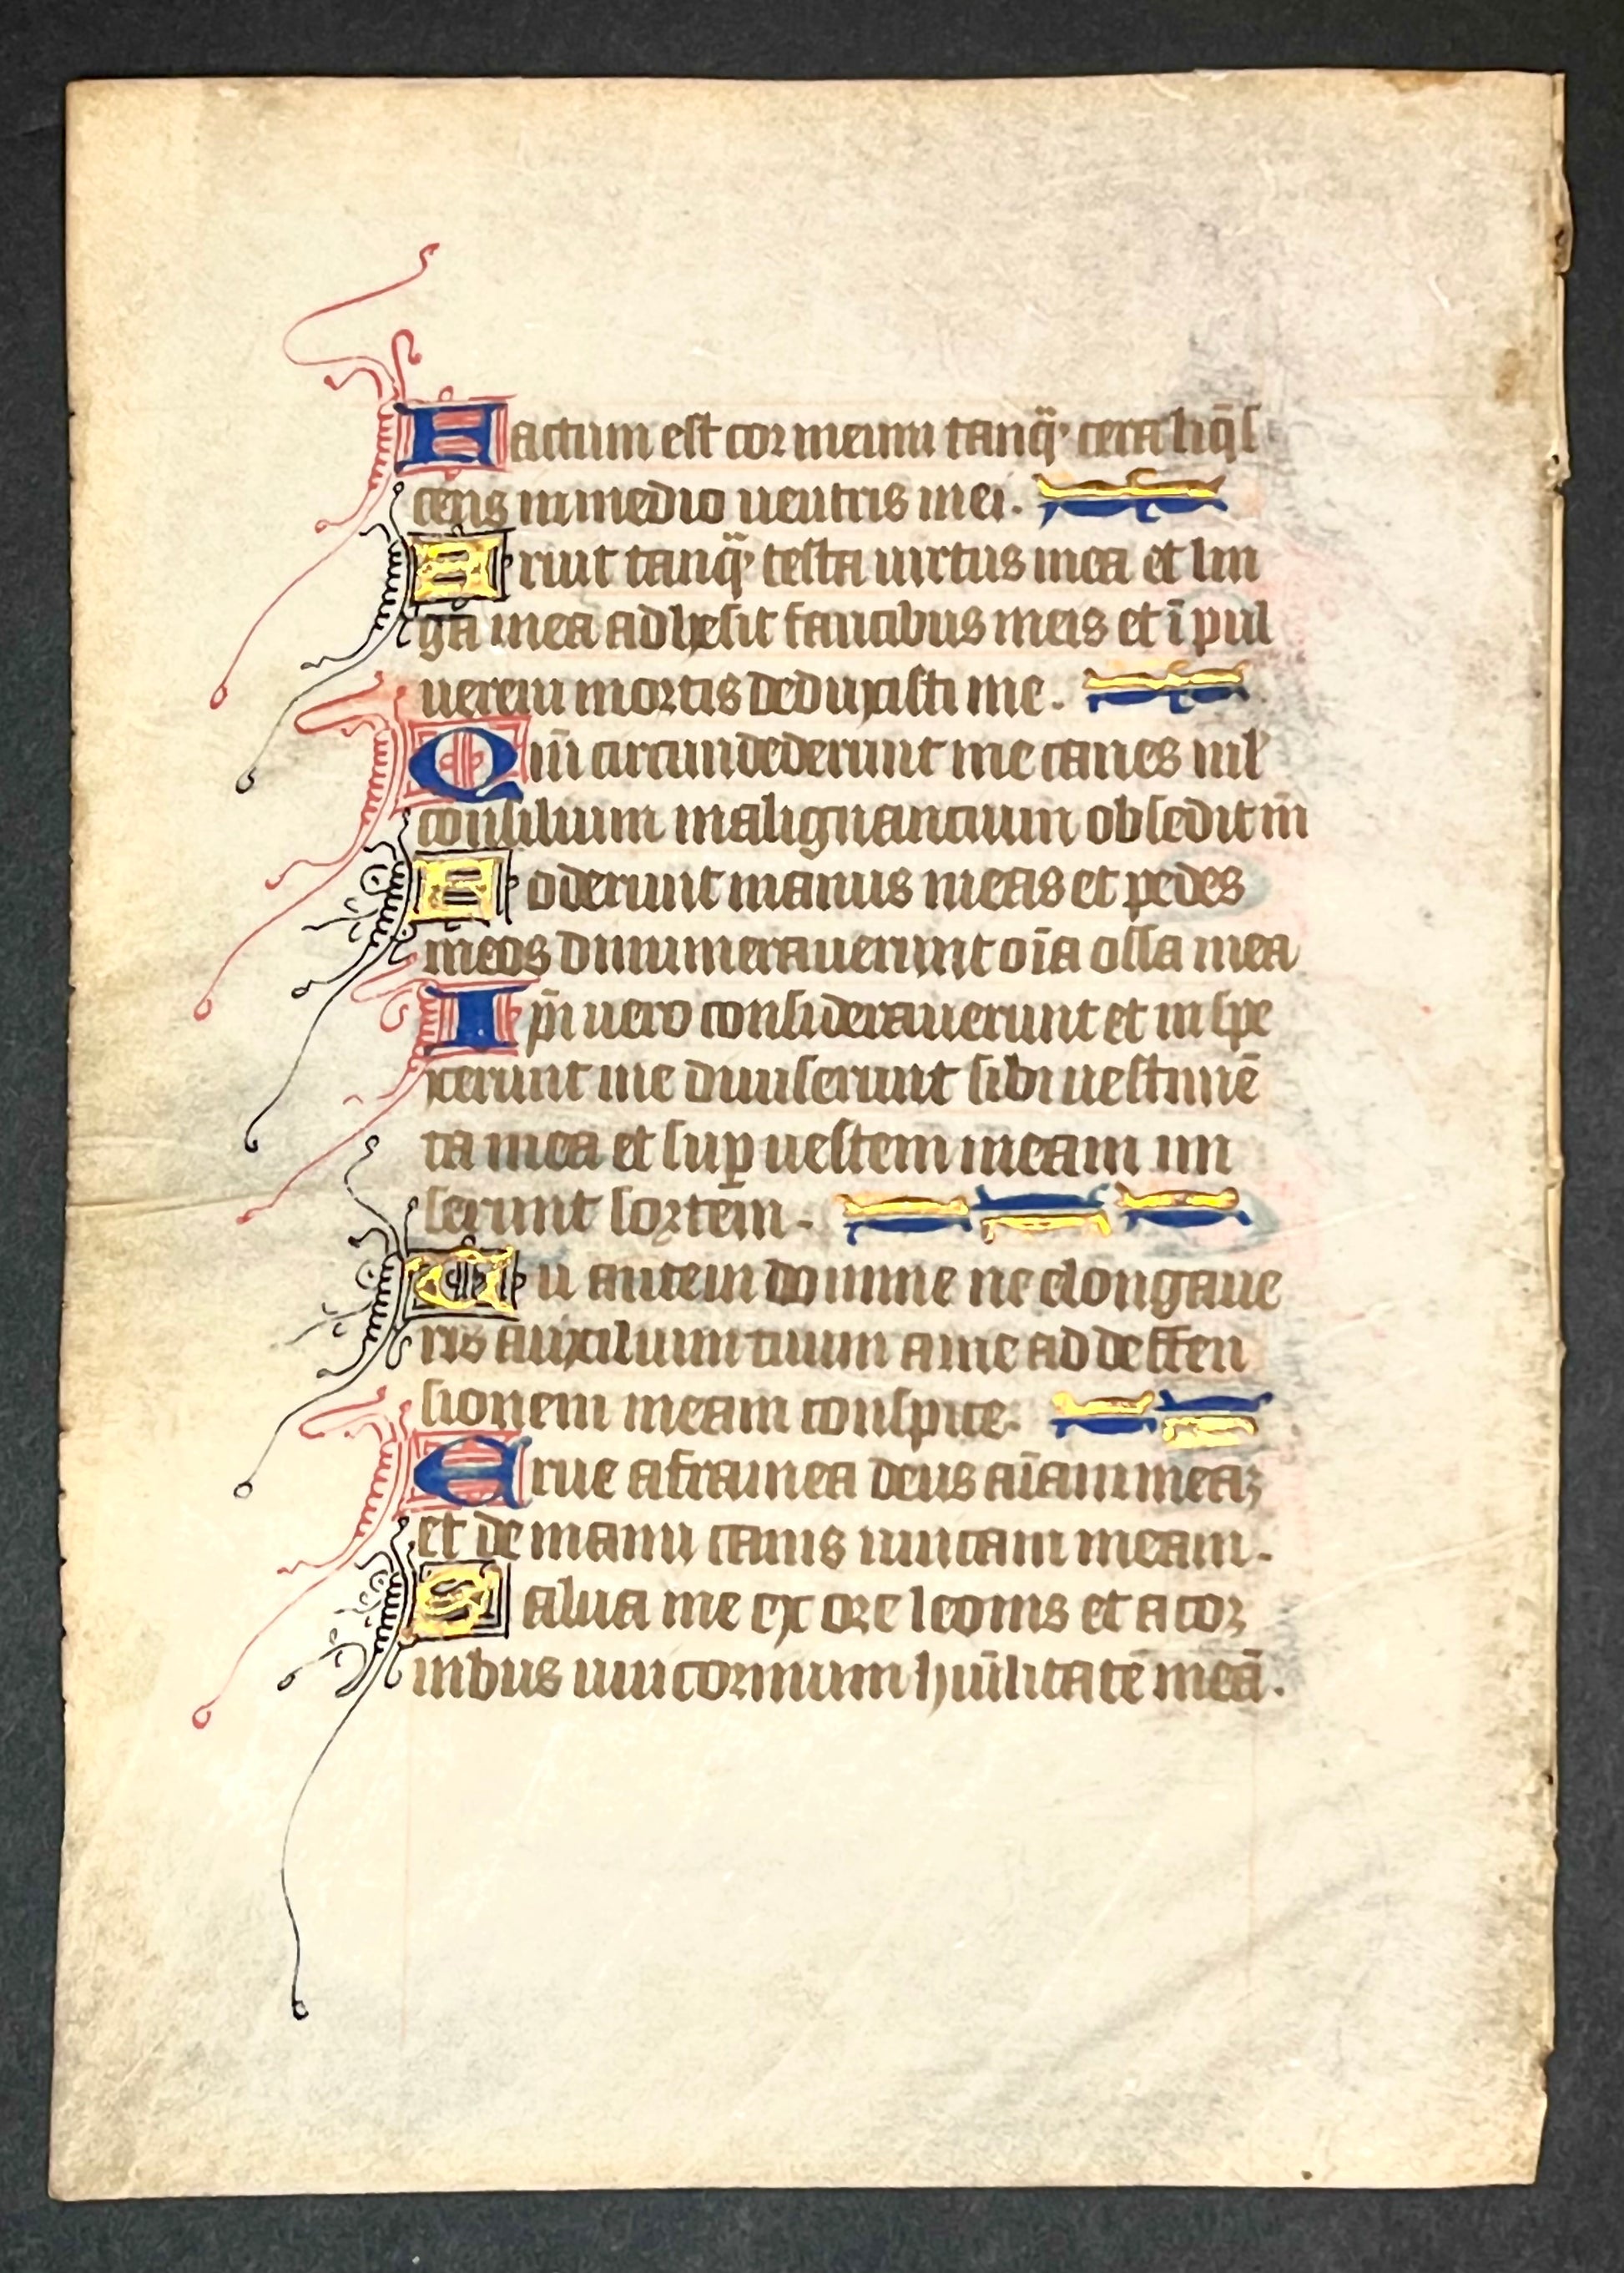 Factum est cor meum tanq̃ cera liq̃s
cens in medio uentris mei.
Aruit tanq̃ testa uirtus mea et lin
ga mea adhesit faucibus meis et ī pul
uerem mortis deduxisti me.
Qm̄ circumdederunt me canes ml'
consilium malignancium obsedit m̄
Foderunt manus meas et pedes
meos dinumerauerunt oīa ossa mea
Ip̄i uero considerauerunt et inspe
xerunt me diuiserunt sibi uestimē
ta mea et sup̱ uestem meam mi
serunt sortem.
Tu autem domine ne elongaue
ris auxilium tuum a me ad deffen
sionem meam conspice.
Erue a framea deus aīam meaꝫ
et de manu canis unicam meam.
Salua me ex ore leonis et a cor
nibus unicornium hūilitatē meā.